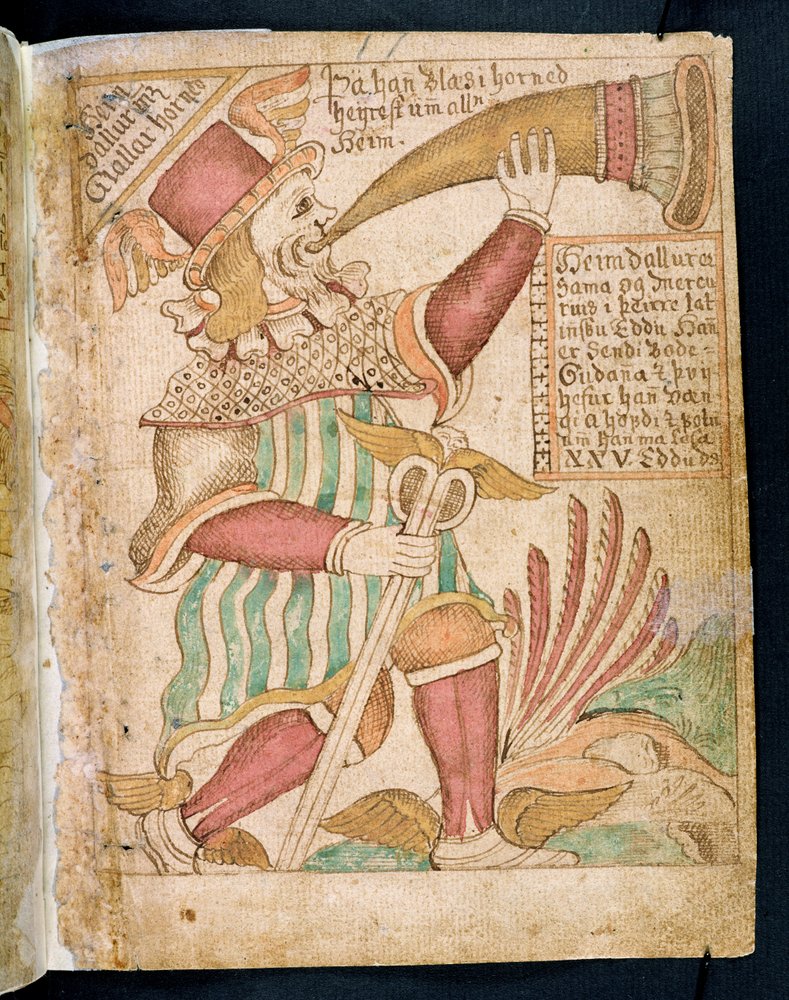 Heim
dallur með
Giallar horned
Þä han blæs i horned
heyrest um allñ
Heim.
Heimdallur er
sama og mercu
rius i þeirre lat
insku Eddu Han
er Sendi Bode=
Gudana & þvi
hefur han væn
gi a høfdi & fotu
um han ma lesa
XXV Eddu dæ